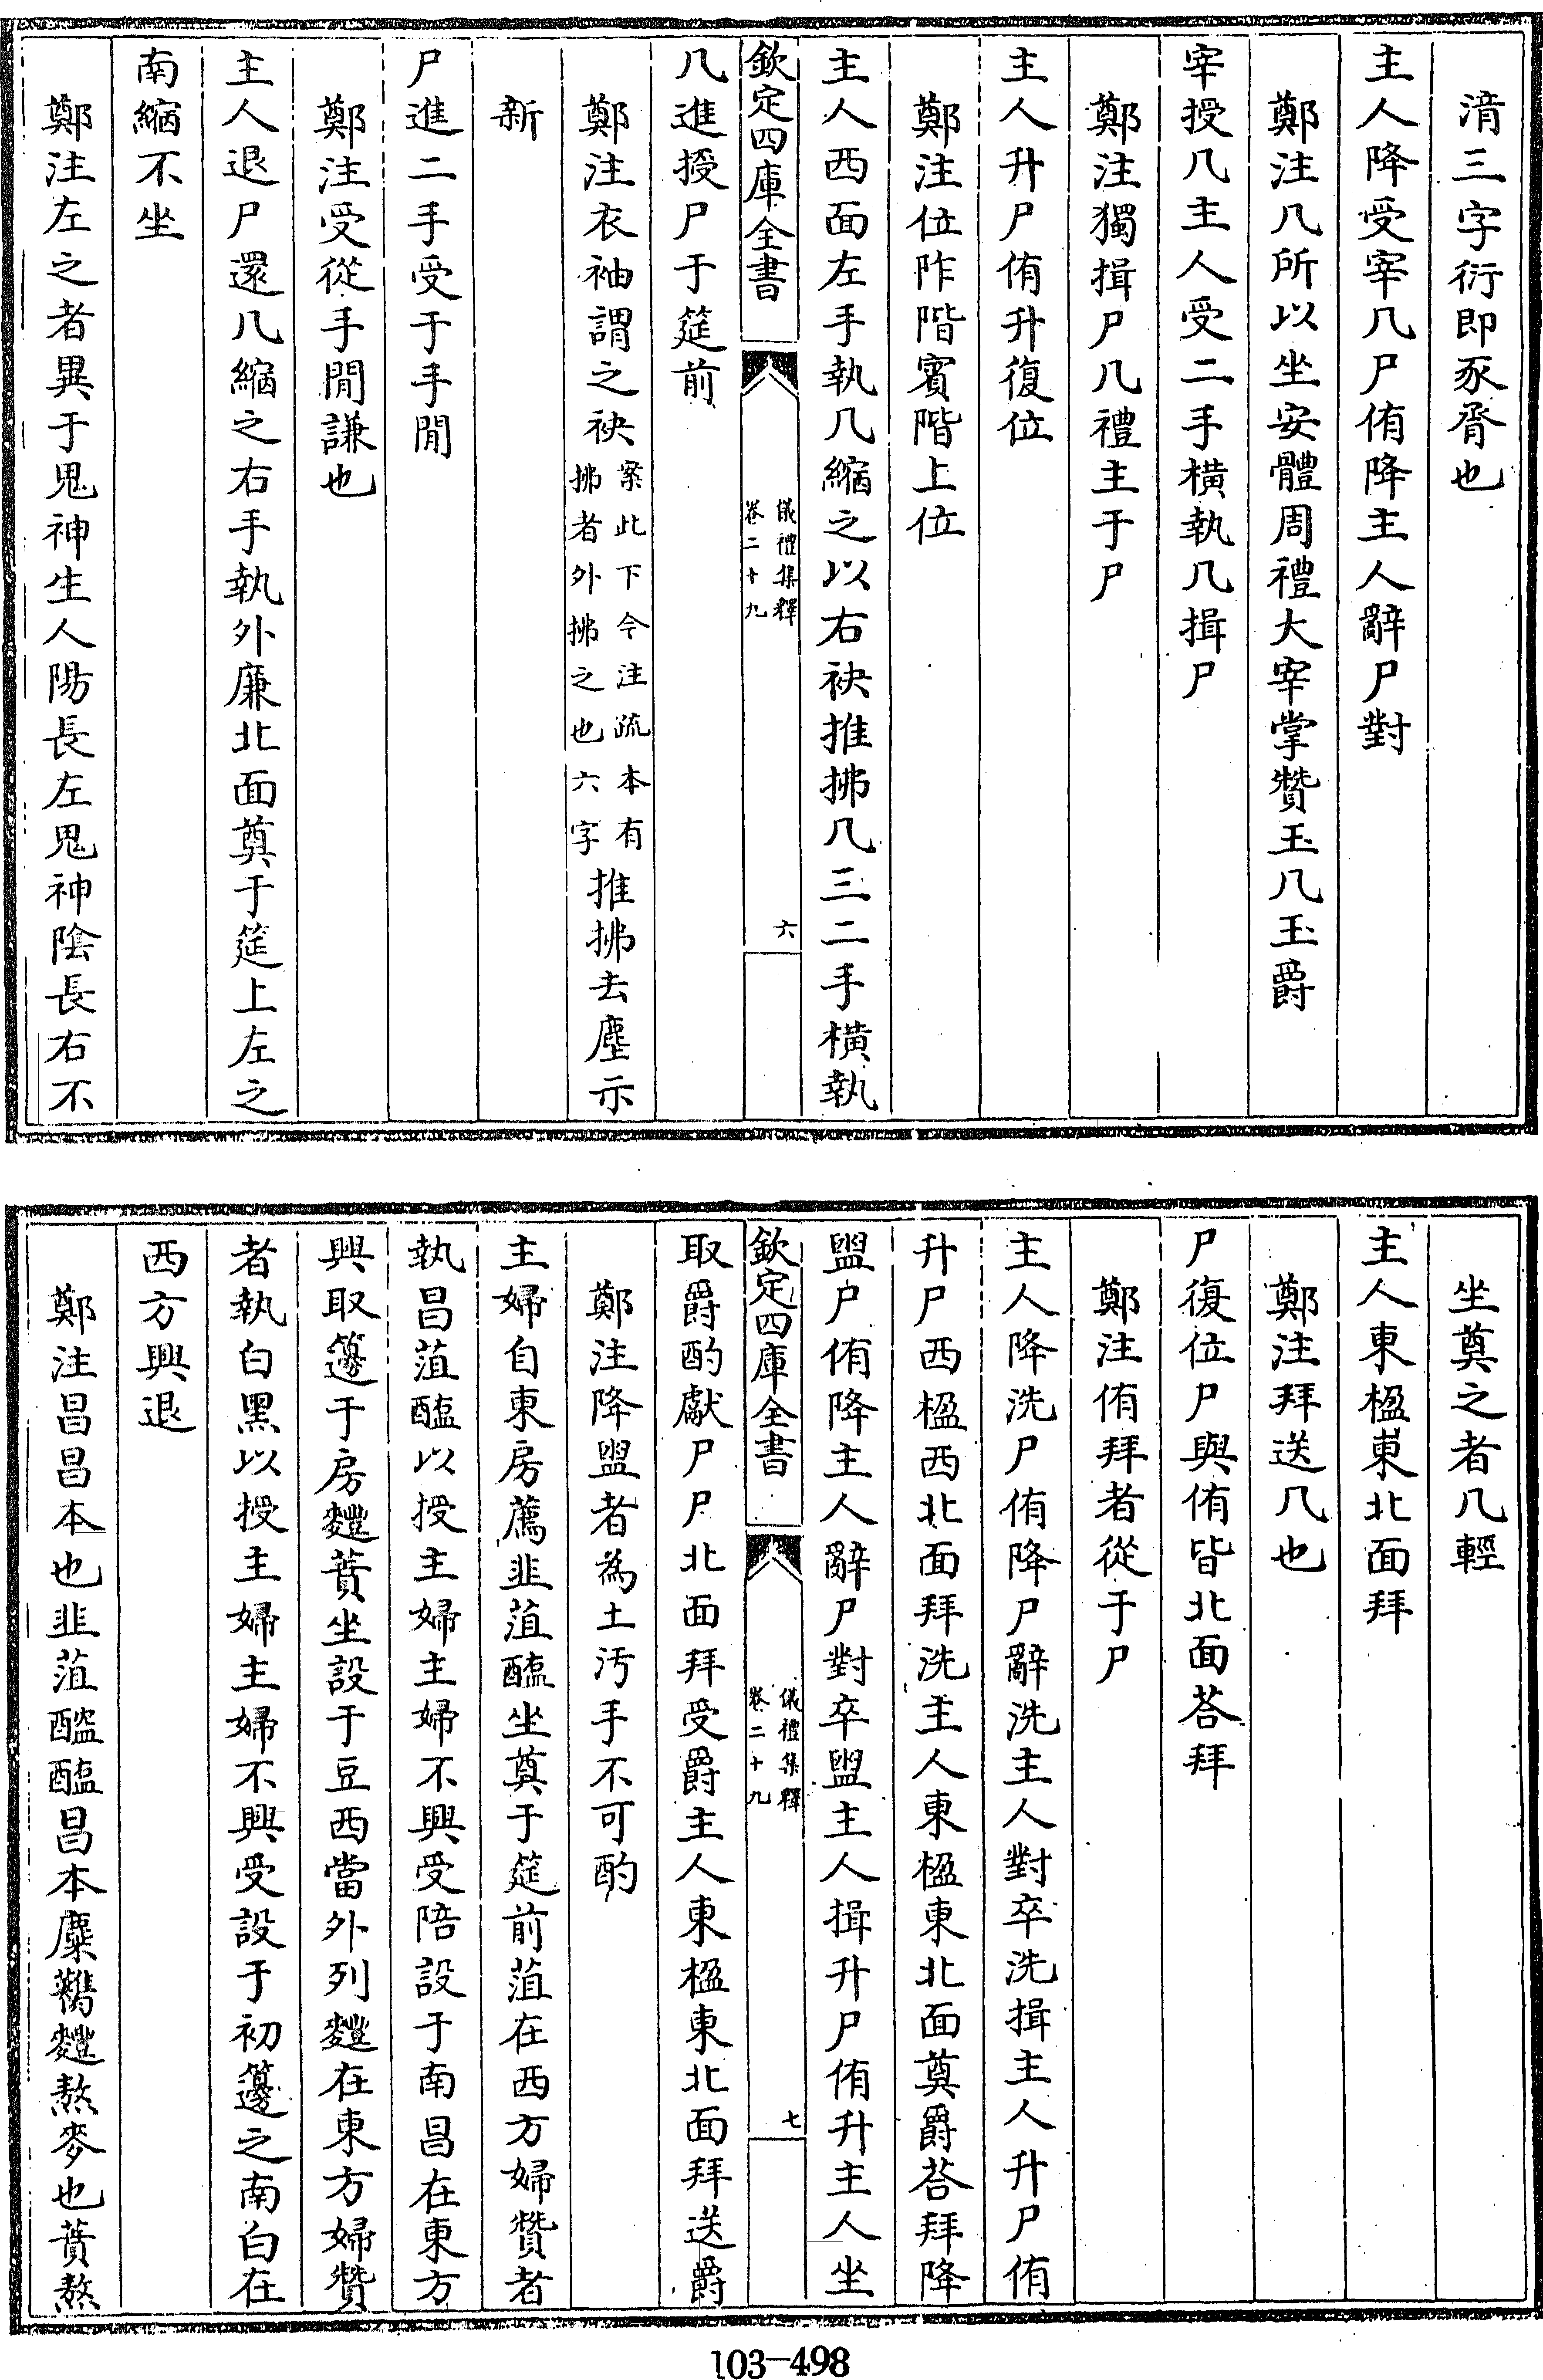 湇三字衍即豕脀也
主人降受宰几尸侑降主人辭尸對
鄭注几所以坐安體周禮大宰掌贊玉几玉爵
宰授几主人受二手橫執几揖尸
鄭注獨揖尸几禮主于尸
主人升尸侑升復位
鄭注位阼階賓階上位
主人西面左手執几縮之以右袂推拂几三二手橫執
欽定四庫全書
儀禮集釋
卷二十九
六
几進授尸于筵前
鄭注衣袖謂之袂案此下今注疏本有拂者外拂之也六字推拂去塵示
新
尸進二手受于手閒
鄭注受從手閒謙也
主人退尸還几縮之右手執外廉北面奠于筵上左之
南縮不坐
鄭注左之者異于鬼神生人陽長左鬼神陰長右不
坐奠之者几輕
主人東楹東北面拜
鄭注拜送几也
尸復位尸與侑皆北面荅拜
鄭注侑拜者從于尸
主人降洗尸侑降尸辭洗主人對卒洗揖主人升尸侑
升尸西楹西北面拜洗主人東楹東北面奠爵荅拜降
盥尸侑降主人辭尸對卒盥主人揖升尸侑升主人坐
欽定四庫全書
儀禮集釋
卷二十九
七
取爵酌獻尸尸北面拜受爵主人東楹東北面拜送爵
鄭注降盥者為土汚手不可酌
主婦自東房薦韭菹醢坐奠于筵前菹在西方婦贊者
執昌菹醢以授主婦主婦不興受陪設于南昌在東方
興取籩于房麷蕡坐設于豆西當外列麷在東方婦贊
者執白黑以授主婦主婦不興受設于初籩之南白在
西方興退
鄭注昌昌本也韭菹醓醢昌本麋臡麷熬麥也蕡熬
103-498